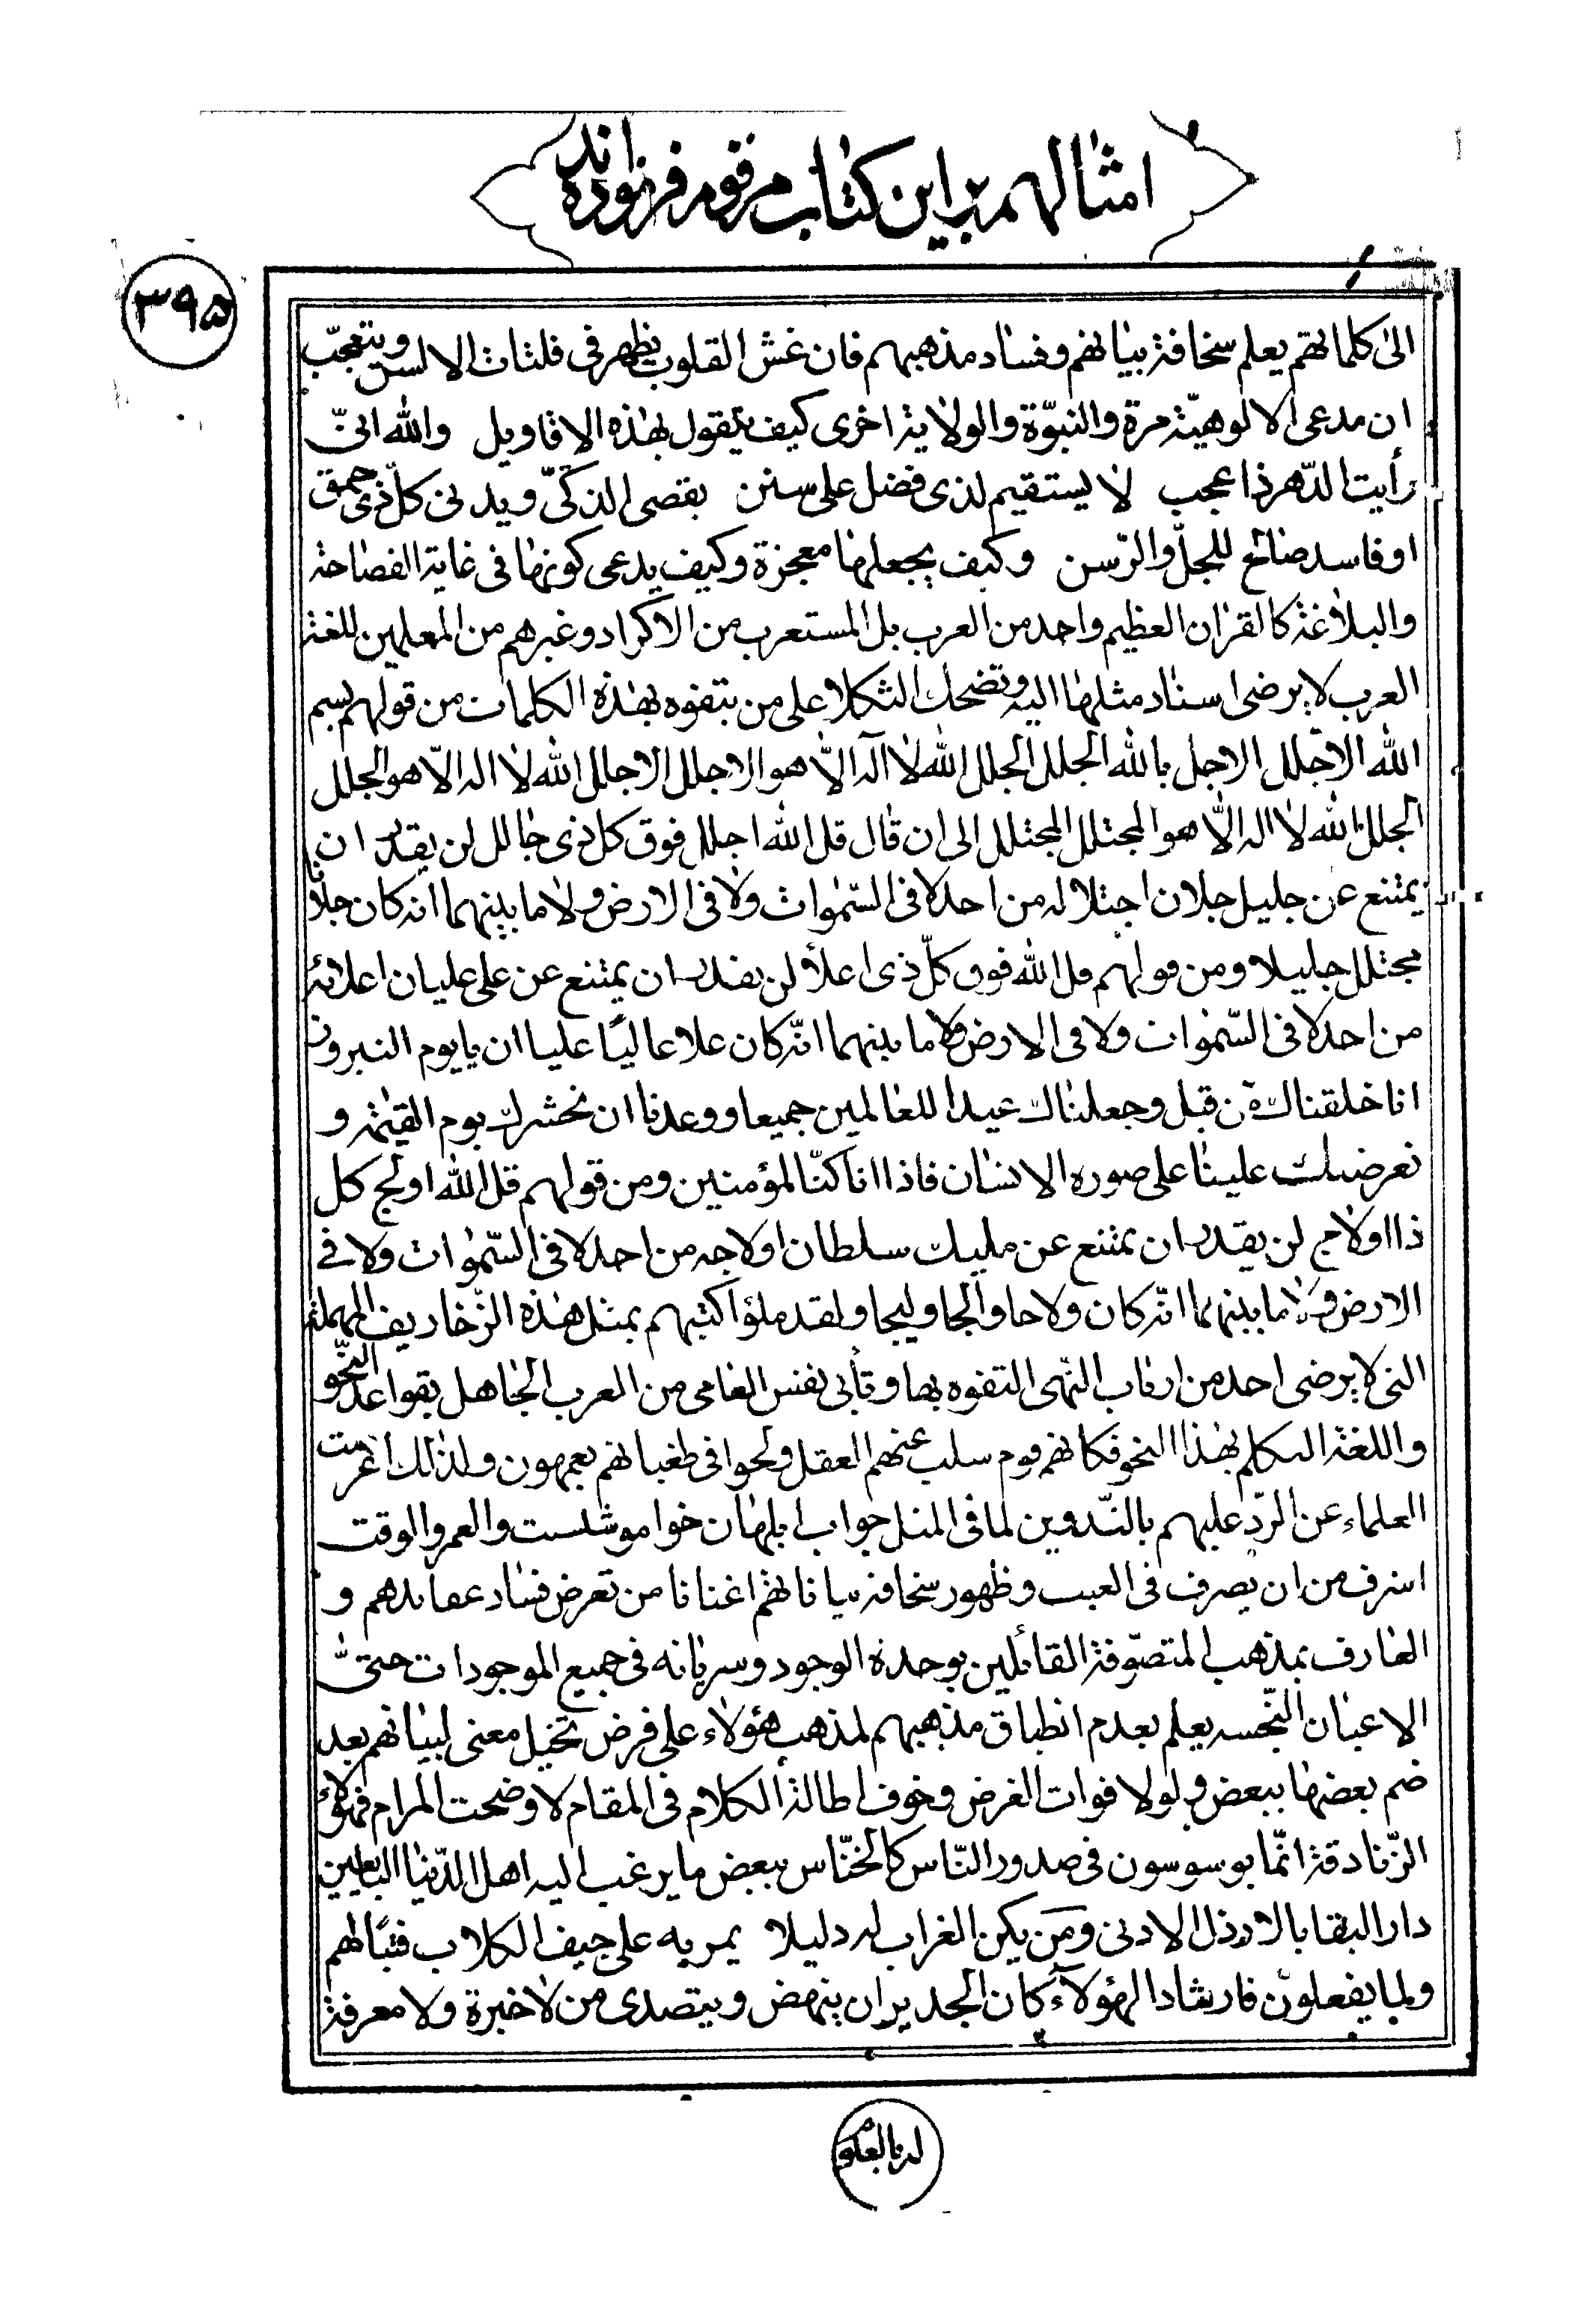 امثالهم بر این کتاب مرقوم فرموده‌اند
۳۹۵
الی کلماتهم یعلم سخافة بیانهم و فساد مذهبهم فان غش القلوب یظهر فی فلتات الالسن و یتعجّب
ان مدعی الالوهیّة مرة والنبوّة والولایة اخری کیف یتقول بهذه الاقاویل والله انّی
رأیت الدّهر ذا عجب لا یستقیم لذی فضل علی سنن یقصی الذکیّ و یدنی کلّ ذی حمق
او فاسد صالح للجلّ والرّسن و کیف یجعلها معجزة و کیف یدعی کونها فی غایة الفصاحة
والبلاغة کالقران العظیم واحد من العرب بل المستعرب من الاکراد و غیرهم من المعلمین للغة
العرب لا یرضی اسناد مثلها الیه و تضحک الثکلا علی من یتفوه بهذه الکلمات من قولهم بسم
الله الاجلل الاجل بالله الجلل الجلل الله لا اله الّا هو الاجلل الاجلل الله لا اله الّا هو الجلل
الجلل الله لا اله الّا هو المجتلل المجتلل الی ان قال قل الله اجلل فوق کل ذی جالل لن یقدر ان
یمتنع عن جلیل جلان اجتلاله من احد لا فی السّموات ولا فی الارض ولا ما بینهما انه کان جلالا
مجتلل جلیلا و من قولهم قل الله فوق کلّ ذی اعلاء لن یقدر ان یمتنع عن علی علیان اعلائه
من احد لا فی السّموات ولا فی الارض ولا ما بینهما انّه کان علاء عالیًا علیا ان یا یوم النیروز
انا خلقناک من قبل و جعلناک عیدا للعالمین جمیعا و وعدنا ان نحشرک یوم القیمة و
نعرضک علینا علی صوره الانسان فاذا انا کنّا لمؤمنین و من قولهم قل الله اولج کل
ذا اولاج لن یقدر ان یمتنع عن ملیک سلطان اولاجه من احد لا فی السّموات ولا فی
الارض ولا ما بینهما انّه کان ولاجا والجا ولیجا ولقد ملؤا کتبهم بمثل هذه الزّخاریف المهملة
التی لا یرضی احد من ارباب النّهی التفوه بها و تأبی نفس العامی من العرب الجاهل بقواعد النّحو
واللغة التکلم بهذا النحو فکانهم قوم سلب عنهم العقل و لجوا فی طغیانهم یعمهون ولذلک اعرضت
العلماء عن الرّد علیهم بالتّدوین لما فی المثل جواب ابلهان خواموشیست والعمر والوقت
اشرف من ان یصرف فی العبث و ظهور سخافة بیاناتهم اغنانا من تعرض فساد عقایدهم و
العارف بمذهب المتصوّفة القائلین بوحدة الوجود و سریانه فی جمیع الموجودات حتیّ
الاعیان النّجسه یعلم بعدم انطباق مذهبهم لمذهب هؤلاء علی فرض تخیل معنی لبیانهم بعد
ضم بعضها ببعض و لولا فوات الغرض و خوف اطالة الکلام فی المقام لاوضحت المرام فهؤلاء
الزّنادقة انّما یوسوسون فی صدور النّاس کالخنّاس ببعض ما یرغب الیه اهل الدّنیا البایعین
دار البقا بالارذل الادنی و من یکن الغراب له دلیلا یمر به علی جیف الکلاب فتبًا لهم
ولما یفعلون فارشادا لهؤلآء کان الجدیر ان ینهض و یتصدی من لا خبرة ولا معرفة